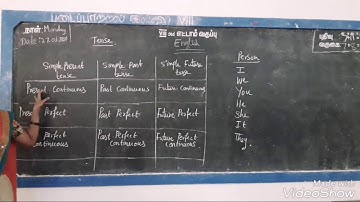 நாள்: Monday
VIII ஆம் எட்டாம் வகுப்பு
பதிவு
வருகை
Date:
Tense
English
Simple Present tense
Simple Past tense
Simple Future tense
Present Continuous
Past Continuous
Future Continuous
Perfect
Past Perfect
Future Perfect
Perfect Continuous
Past Perfect Continuous
Future Perfect Continuous
Person
I
We
You
He
She
It
They
Made with
VideoShow